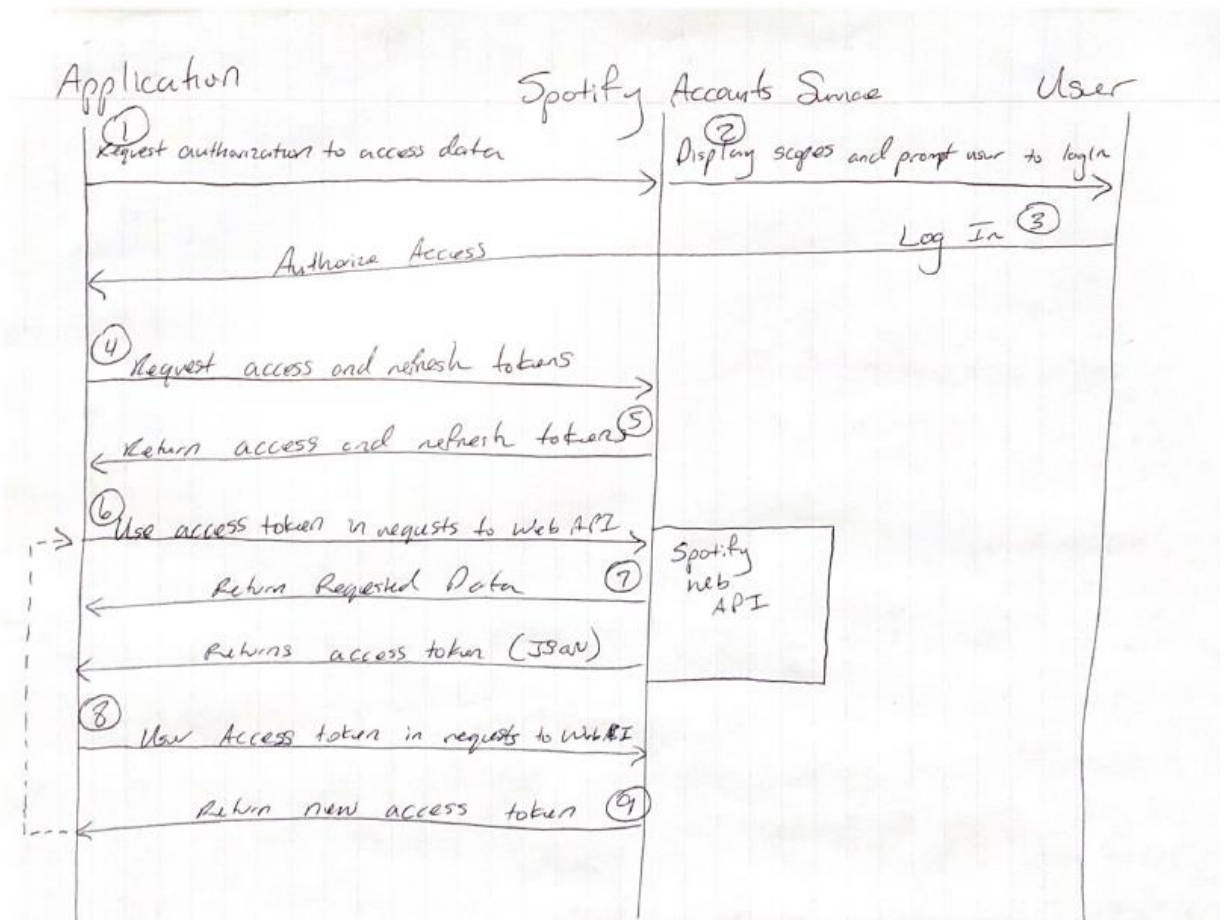 Application
Spotify Accounts Service
User
1
Request authorization to access data
2
Display scopes and prompt user to login
Log In 3
Authorize Access
4
Request access and refresh tokens
5
Return access and refresh tokens
6
Use access token in requests to Web API
Spotify
web
API
Return Requested Data 7
Returns access token (JSON)
8
User Access token in requests to Web API
Return new access token 9